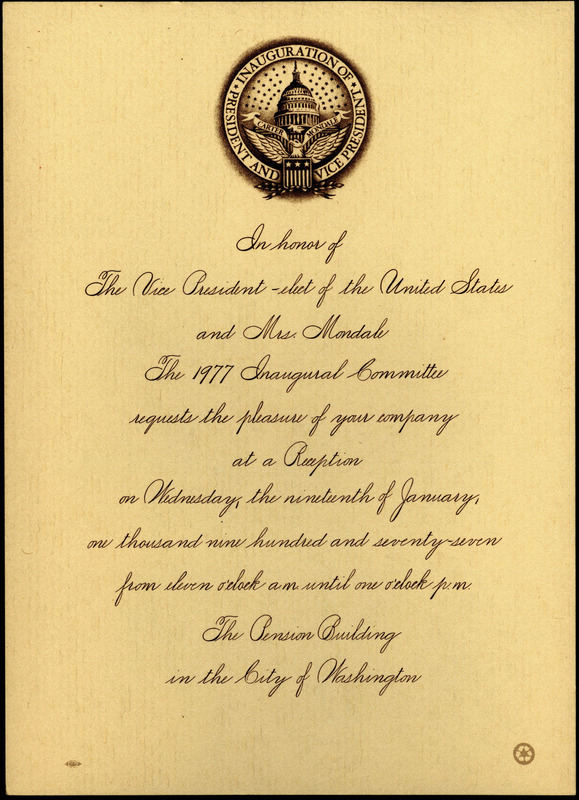 INAUGURATION OF
PRESIDENT AND VICE PRESIDENT
CARTER MONDALE
In honor of
The Vice President-elect of the United States
and Mrs. Mondale
The 1977 Inaugural Committee
requests the pleasure of your company
at a Reception
on Wednesday, the nineteenth of January,
one thousand nine hundred and seventy-seven
from eleven o'clock a.m. until one o'clock p.m.
The Pension Building
in the City of Washington